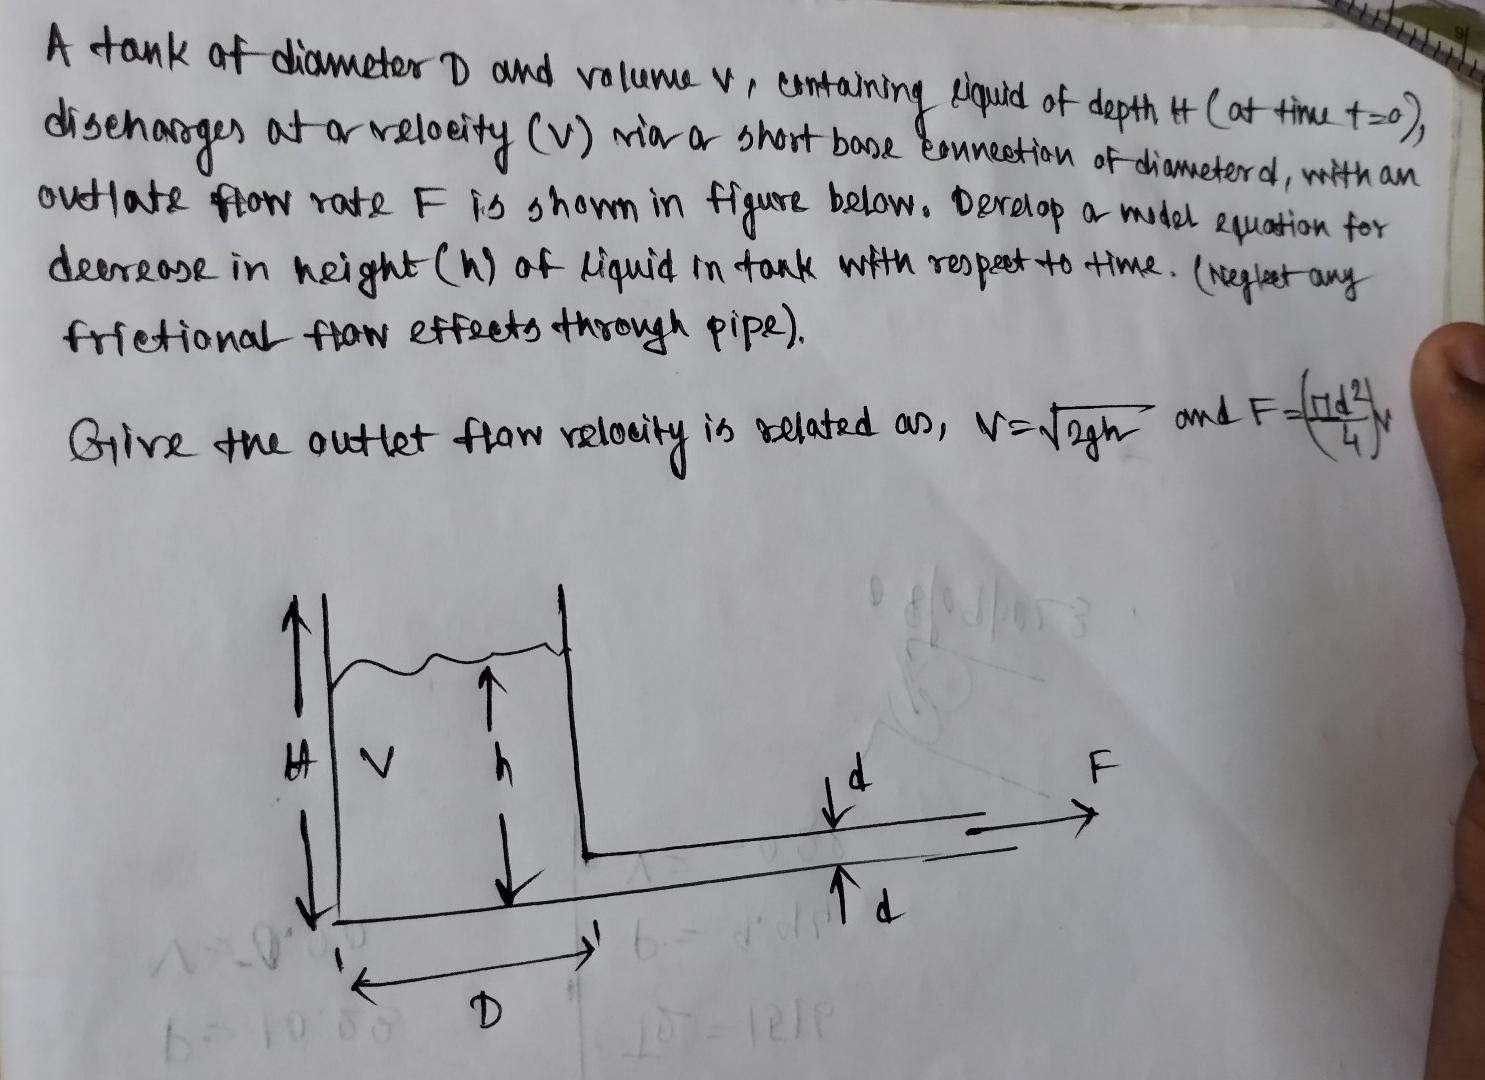 A tank of diameter D and volume V, containing liquid of depth H (at time t=0),
discharges at a velocity (V) via a short base connection of diameter d, with an
outlate flow rate F is shown in figure below. Develop a model equation for
decrease in height (h) of liquid in tank with respect to time. (Neglect any
frictional flow effects through pipe).
Give the outlet flow velocity is related as, V=√2gh and F=(πd²/4)v
H
V
h
d
F
d
D